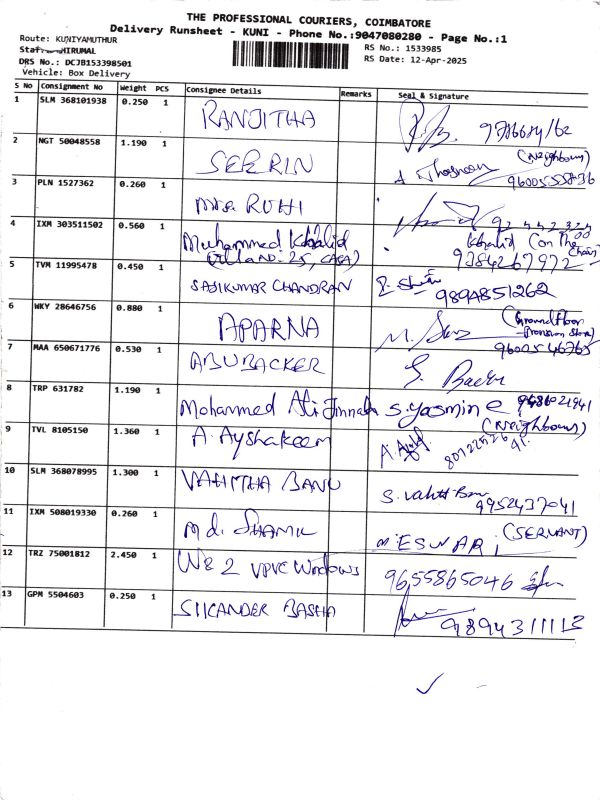 THE PROFESSIONAL COURIERS, COIMBATORE
Delivery Runsheet - KUNI - Phone No.:9047080280 - Page No.:1
Route: KUNIYAMUTHUR
RS No.: 1533985
HIRUMAL
RS Date: 12-Apr-2025
DRS No.: DCJB153398501
Vehicle: Box Delivery
S No Consignment No Weight PCS Consignee Details Remarks Seal & Signature
1 SLM 368101938 0.250 1 RANJITHA
2 NGT 50048558 1.190 1 SEERIN (Neighbour)
3 PLN 1527362 0.260 1 Mrs RUHI
4 IXM 303511502 0.560 1 Muhammed Khalid Khalid (on The
25, 9784267972
5 TVM 11995478 0.450 1 SAJIKUMAR CHANDRAN 9894851262
6 WKY 28646756 0.880 1 APARNA (Ground Floor
Provision Store)
9600546765
7 MAA 650671776 0.530 1 ABUBACKER S.
8 TRP 631782 1.190 1 Mohammed Ali Jinnah S.yasmine
(Neighbour)
9 TVL 8105150 1.360 1 A. Ayshakeem
10 SLM 368078995 1.300 1 VAHITHA BANU S.
9952437041
11 IXM 508019330 0.260 1 Md. SHAMIL M.ESWARI (SERVANT)
12 TRZ 75001812 2.450 1 We 2 UPVC Windows 9655865046
13 GPM 5504603 0.250 1 SIKANDER BASHA 9894311113